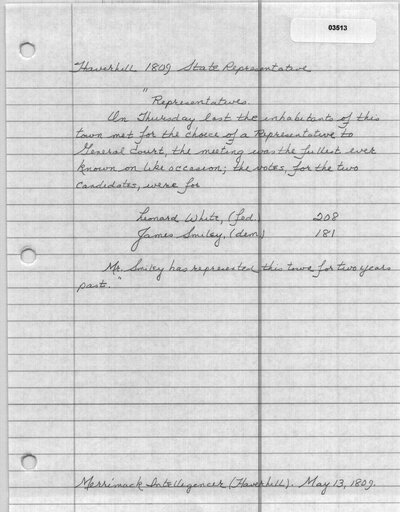 03513
Haverhill 1809 State Representative
"Representatives.
On Thursday last the inhabitants of this
town met for the choice of a Representative to
General Court, the meeting was the fullest ever
known on like occasion; the votes, for the two
candidates, were for
Leonard White, (fed.) 208
James Smiley, (dem.) 181
Mr. Smiley has represented this town for two years
past."
Merrimack Intelligencer (Haverhill). May 13, 1809.